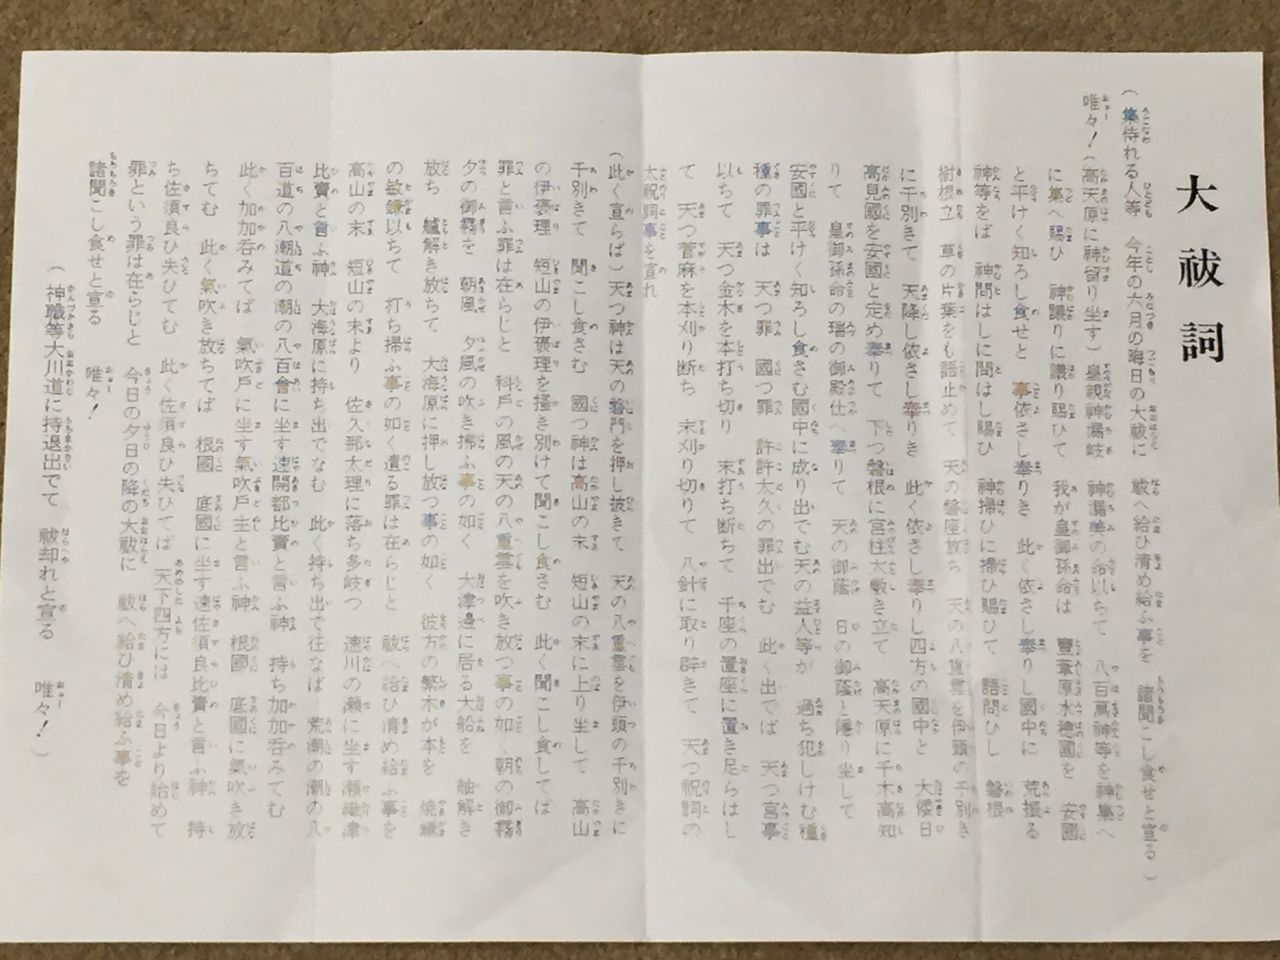 大祓詞
（集侍れる人等　今年の六月の晦日の大祓に　祓へ給ひ清め給ふ事を　諸聞こし食せと宣る）
唯々！（高天原に神留り坐す）皇親神漏岐　神漏美の命以ちて　八百萬神等を神集へ
に集へ賜ひ　神議りに議り賜ひて　我が皇御孫命は　豐葦原水穂國を　安國
と平けく知ろし食せと　事依さし奉りき　此く依さし奉りし國中に　荒振る
神等をば　神問はしに問はし賜ひ　神掃ひに掃ひ賜ひて　語問ひし　磐根
樹根立　草の片葉をも語止めて　天の磐座放ち　天の八重雲を伊頭の千別き
に千別きて　天降し依さし奉りき　此く依さし奉りし四方の國中と　大倭日
高見國を安國と定め奉りて　下つ磐根に宮柱太敷き立て　高天原に千木高知
りて　皇御孫命の瑞の御殿仕へ奉りて　天の御蔭　日の御蔭と隱り坐して
安國と平けく知ろし食さむ國中に成り出でむ天の益人等が　過ち犯しけむ種
種の罪事は　天つ罪　國つ罪　許許太久の罪出でむ　此く出でば　天つ宮事
以ちて　天つ金木を本打ち切り　末打ち断ちて　千座の置座に置き足らはし
て　天つ菅麻を本刈り断ち　末刈り切りて　八針に取り辟きて　天つ祝詞の
太祝詞事を宣れ
（此く宣らば）天つ神は天の磐門を押し披きて　天の八重雲を伊頭の千別きに
千別きて　聞こし食さむ　國つ神は高山の末　短山の末に上り坐して　高山
の伊褒理　短山の伊褒理を掻き別けて聞こし食さむ　此く聞こし食してば
罪と言ふ罪は在らじと　科戶の風の天の八重雲を吹き放つ事の如く　朝の御霧
夕の御霧を　朝風　夕風の吹き拂ふ事の如く　大津邊に居る大船を　舳解き
放ち　艫解き放ちて　大海原に押し放つ事の如く　彼方の繁木が本を　燒鎌
の敏鎌以ちて　打ち掃ふ事の如く遺る罪は在らじと　祓へ給ひ清め給ふ事を
高山の末　短山の末より　佐久那太理に落ち多岐つ　速川の瀬に坐す瀬織津
比賣と言ふ神　大海原に持ち出でなむ　此く持ち出で往なば　荒潮の潮の八
百道の八潮道の潮の八百會に坐す速開都比賣と言ふ神　持ち加加呑みてむ
此く加加呑みてば　氣吹戶に坐す氣吹戶主と言ふ神　根國　底國に氣吹き放
ちてむ　此く氣吹き放ちては　根國　底國に坐す速佐須良比賣と言ふ神　持
ち佐須良ひ失ひてむ　此く佐須良ひ失ひては　天下四方には　今日より始めて
罪という罪は在らじと　今日の夕日の降の大祓に　祓へ給ひ清め給ふ事を
諸聞こし食せと宣る　　唯々！
（神職等大川道に持退出でて　祓却れと宣る　　唯々！）